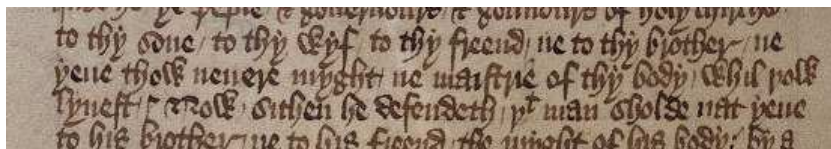 peple / & gouernours / & gouernours of holy chirche
to thy sone / to thy wyf / to thy freend / ne to thy brother / ne
yeue thow neuere myght / ne maistrie of thy body / whil þow
lyuest / Now / sithen he defendeth / yt man sholde nat yeue
to his brother / ne to his freend / the myght of his body / by a